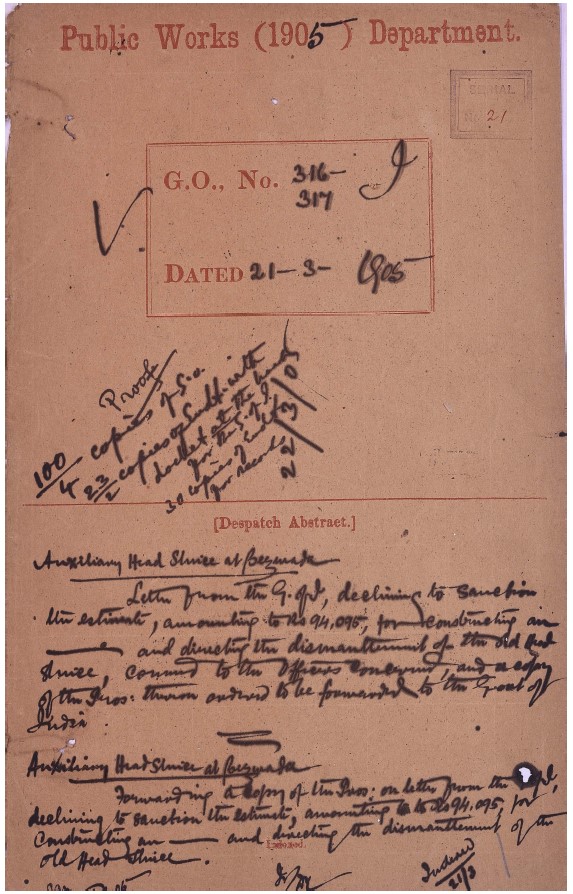 Public Works (1905) Department.
SERIAL
No. 21
G.O., No. 316-
317 I
DATED 21-3- 1905
Proof
100/4 copies of G.O.
23/2 copies of Endt. with
docket at the head
for the G. of I.
30 copies of Endt.
for record
22/3/05
[Despatch Abstract.]
Auxiliary Head Sluice at Bezwada
Letter from the G. of I, declining to sanction
the estimate, amounting to Rs 94,095, for constructing an
—— and directing the dismantlement of the old Head
Sluice, commd to the Officers concerned, and a copy
of the Pros: thereon ordered to be forwarded to the Govt of
India
Auxiliary Head Sluice at Bezwada
Forwarding a copy of the Pros: on letter from the G. of I,
declining to sanction the estimate, amounting to Rs 94,095, for
constructing an —— and directing the dismantlement of the
old Head Sluice.
Indexed.
Indexed
21/3